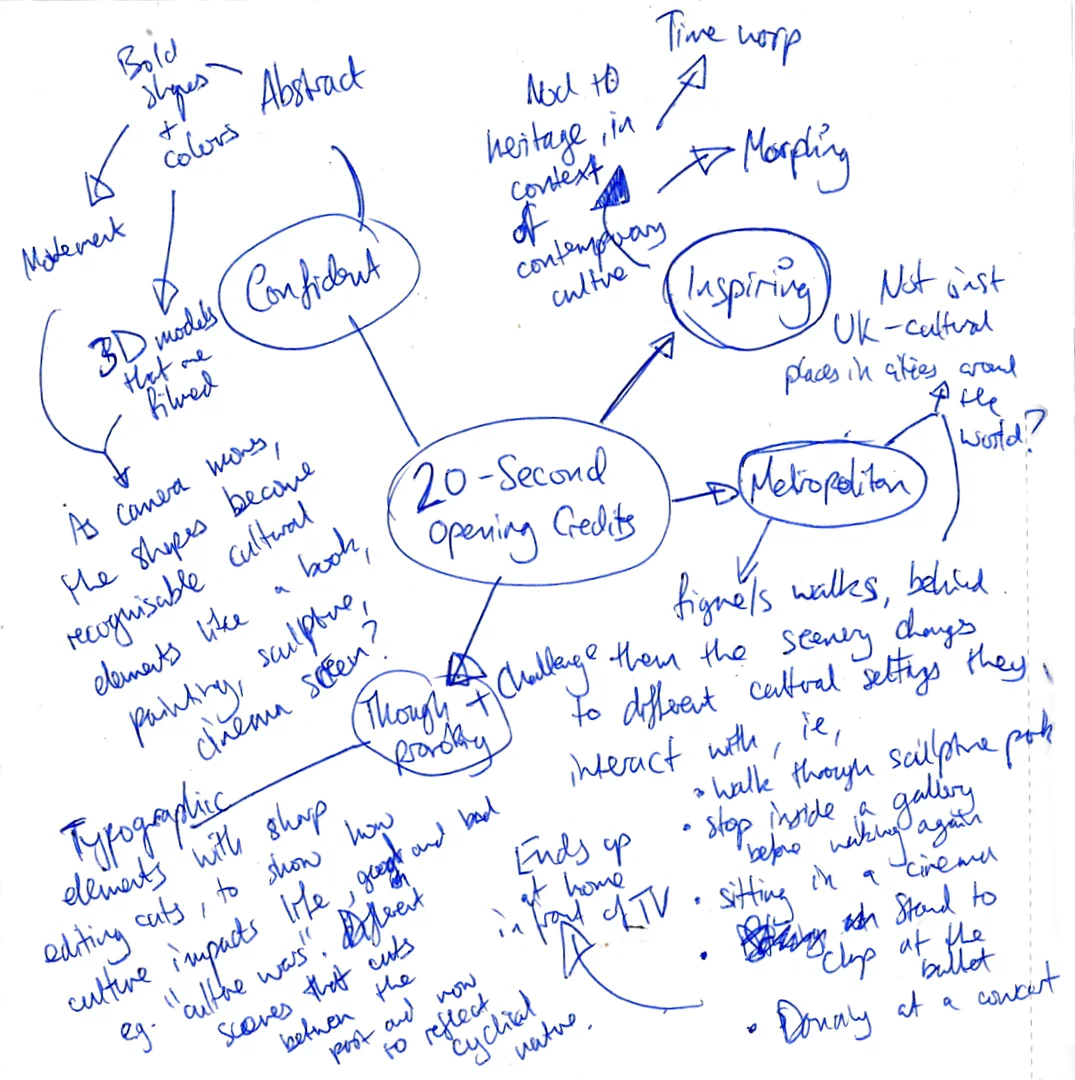 Bold
shapes
+
colors
Abstract
Movement
3D models
that are
filmed
As camera moves,
the shapes become
recognisable cultural
elements like a book,
painting, sculpture,
cinema screen?
Confident
Time warp
Nod to
heritage, in
context
of
contemporary
culture
Morphing
Inspiring
20-Second
Opening Credits
Not just
UK - cultural
places in cities around
the
world?
Metropolitan
figure/s walks, behind
them the scenery changes
to different cultural settings they
interact with, ie,
• walk through sculpture park
• stop inside a gallery
before walking again
• sitting in a cinema
• Stand to
clap at the
ballet
• Dancing at a concert
Ends up
at home
in front of TV
Though +
Provoking
Challenge
Typographic
elements with sharp
editing cuts, to show how
culture impacts life, good and bad
eg. "culture wars". Different
scenes that cuts
between the
past and now
to reflect
cyclical
nature.